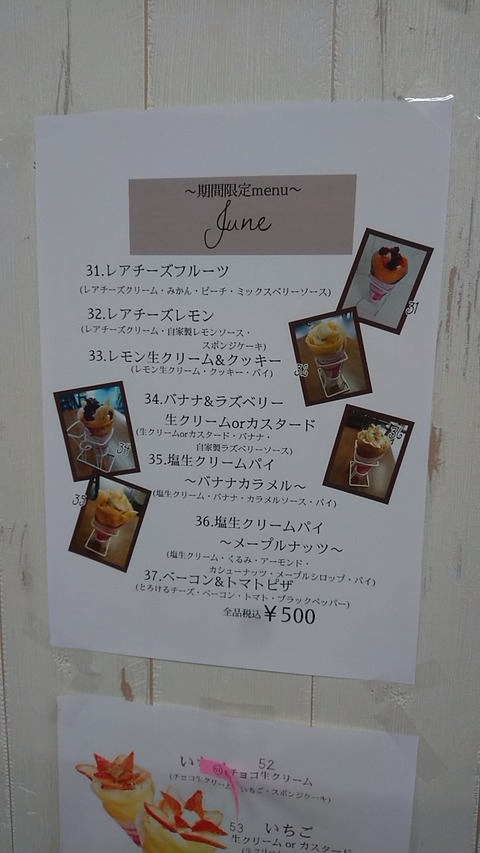 ～期間限定menu～
June
31.レアチーズフルーツ
(レアチーズクリーム・みかん・ピーチ・ミックスベリーソース)
31
32.レアチーズレモン
(レアチーズクリーム・自家製レモンソース・
スポンジケーキ)
32
33.レモン生クリーム&クッキー
(レモン生クリーム・クッキー・パイ)
34.バナナ&ラズベリー
生クリームorカスタード
(生クリームorカスタード・バナナ・
自家製ラズベリーソース)
34
36
35.塩生クリームパイ
～バナナカラメル～
(塩生クリーム・バナナ・カラメルソース・パイ)
35
36.塩生クリームパイ
～メープルナッツ～
(塩生クリーム・くるみ・アーモンド・
カシューナッツ・メープルシロップ・パイ)
37.ベーコン&トマトピザ
(とろけるチーズ・ベーコン・トマト・ブラックペッパー)
全品税込￥500
52
チョコ生クリーム
(チョコ生クリーム・いちご・スポンジケーキ)
53 いちご
生クリーム or カスタード